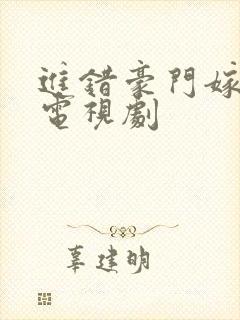 進錯豪門嫁
電視劇
辜建明